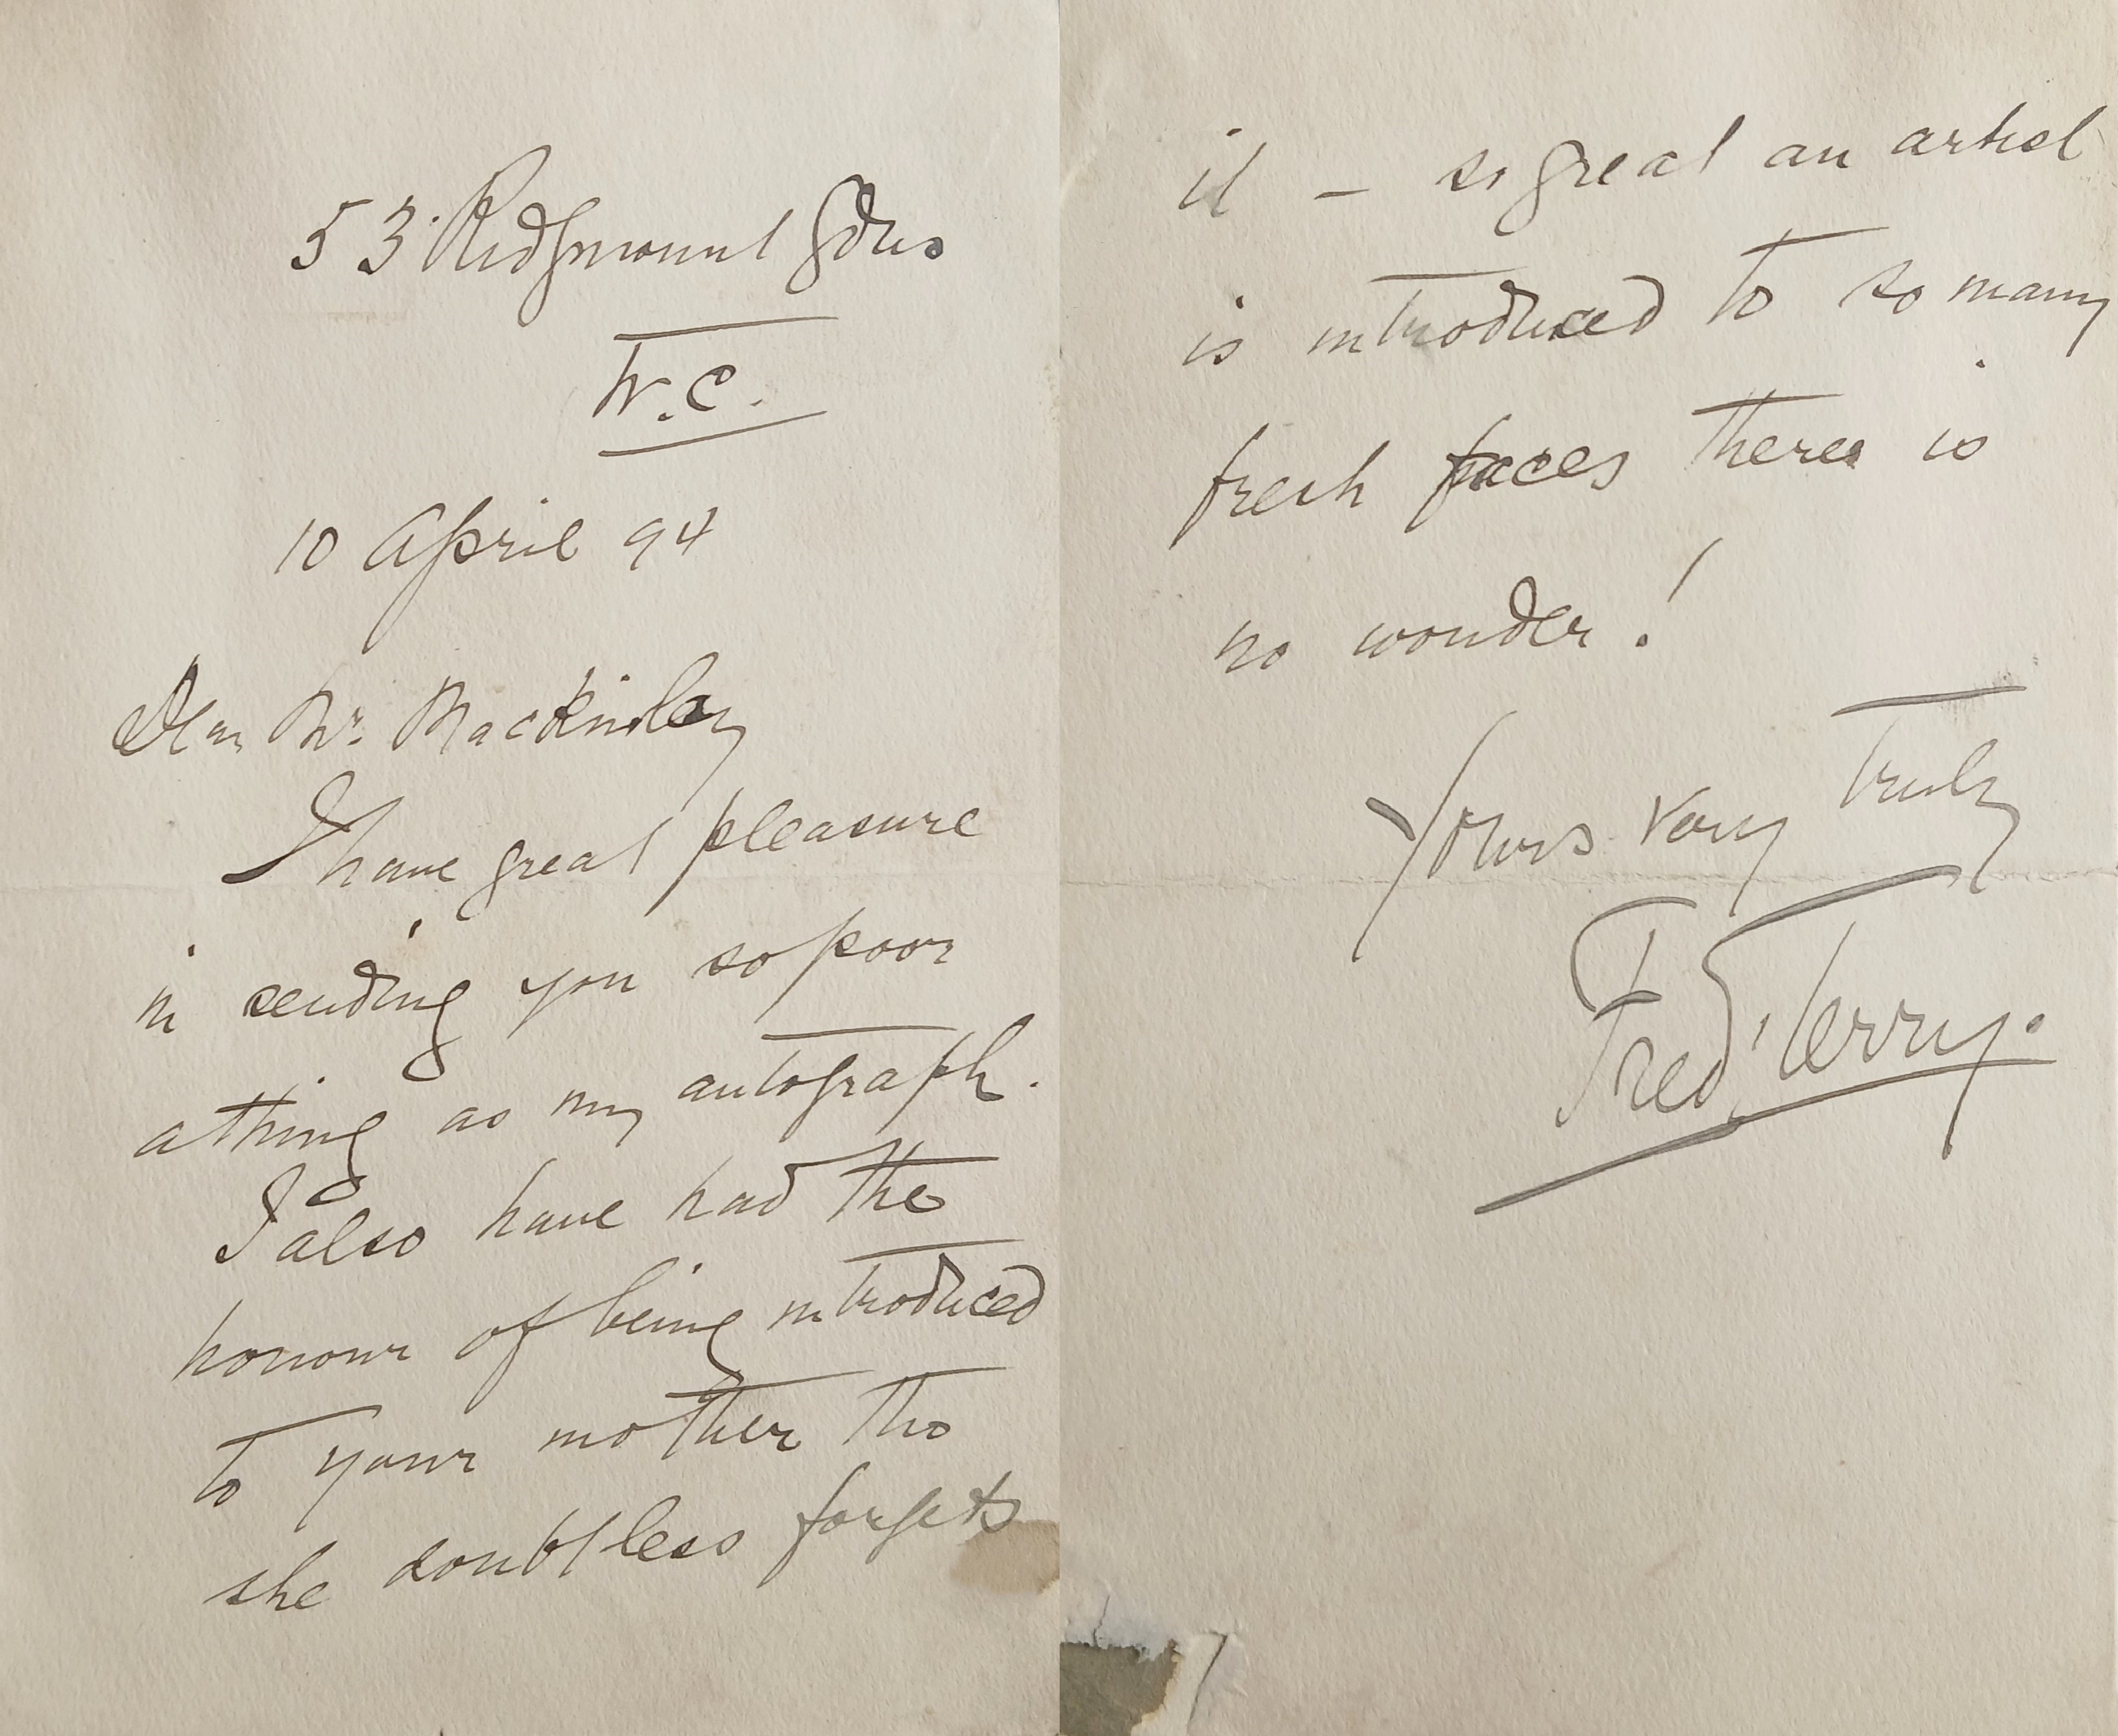 53 Ridgmount Gdns
W.C.
10 April 94
Dear Mr. Mackinlay
I have great pleasure
in sending you so poor
a thing as my autograph.
I also have had the
honour of being introduced
to your mother tho
she doubtless forgets
it — so great an artist
is introduced to so many
fresh faces there is
no wonder!
Yours very truly
Fred Terry.